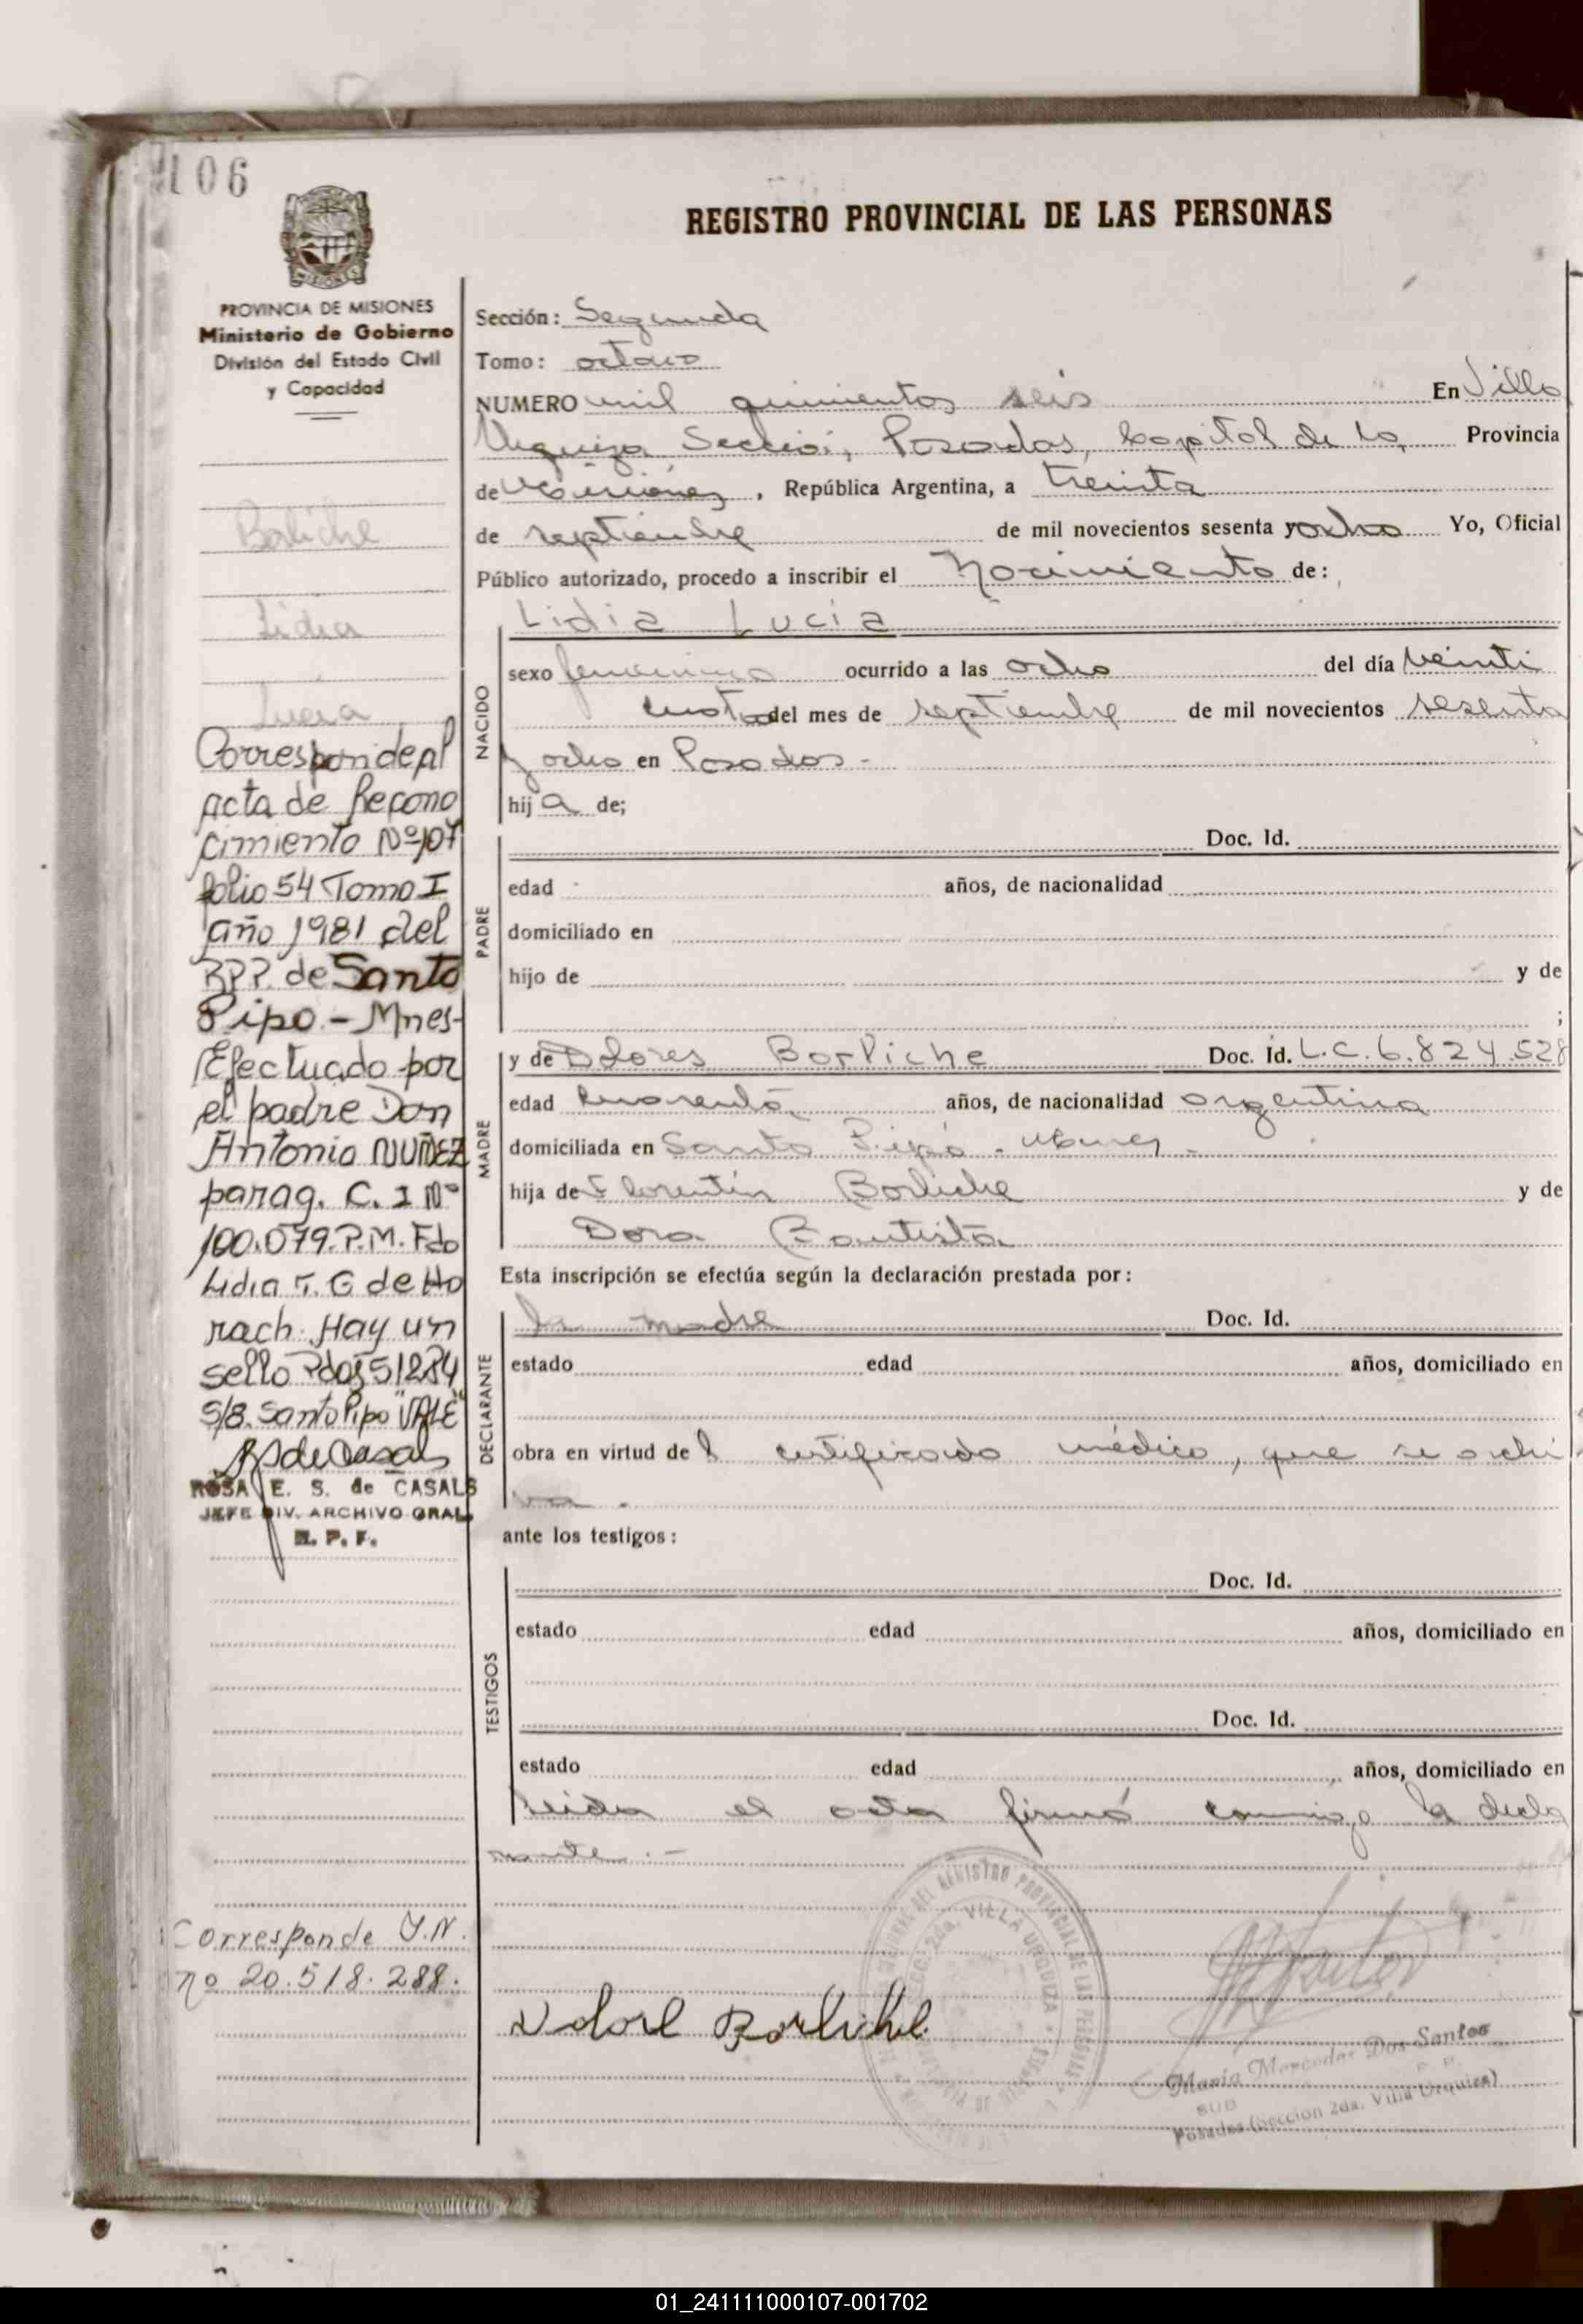 106
REGISTRO PROVINCIAL DE LAS PERSONAS
PROVINCIA DE MISIONES
Ministerio de Gobierno
División del Estado Civil
y Capacidad
Borliche
Lidia
Lucia
Corresponde al
acta de Recono
cimiento Nº 107
folio 54 Tomo I
año 1981 del
RPP. de Santo
Pipo - Mnes-
Efectuado por
el padre Don
Antonio NUÑEZ
parag. C. I Nº
100.079. P.M. Fdo
Lidia T. G de Ho
rach. Hay un
sello Pdos 5/12/84
S/B. Santo Pipo "VALE"
ROSA E. S. de CASALS
JEFE DIV. ARCHIVO GRAL
R. P. P.
Corresponde
nº 20.518.288.
Sección: Segunda
Tomo: octavo
NUMERO mil quinientos seis En Villa
Urquiza Sección, Posadas, Capital de la Provincia
de Misiones, República Argentina, a treinta
de septiembre de mil novecientos sesenta y ocho Yo, Oficial
Público autorizado, procedo a inscribir el Nacimiento de:
Lidia Lucia
NACIDO
sexo femenino ocurrido a las ocho del día veinti
cuatro del mes de septiembre de mil novecientos sesenta
y ocho en Posadas -
hija de;
PADRE
Doc. Id.
edad años, de nacionalidad
domiciliado en
hijo de y de
;
MADRE
y de Dolores Borliche Doc. Id. L.C. 6.824.528
edad cuarenta años, de nacionalidad argentina
domiciliada en Santo Pipó - Mnes -
hija de Florentin Borliche y de
Dora Bautista
Esta inscripción se efectúa según la declaración prestada por:
DECLARANTE
la madre Doc. Id.
estado edad años, domiciliado en
obra en virtud del certificado médico, que se archi
va .
ante los testigos:
TESTIGOS
Doc. Id.
estado edad años, domiciliado en
Doc. Id.
estado edad años, domiciliado en
leida el acta firmó conmigo la decla
rante .-
DEL REGISTRO PROVINCIAL DE LAS PERSONAS
SECC. 2da. VILLA URQUIZA
Dolore Borliche
Maria Mercedes Dos Santos
SUB
Posadas (Sección 2da. Villa Urquiza)
01_241111000107-001702